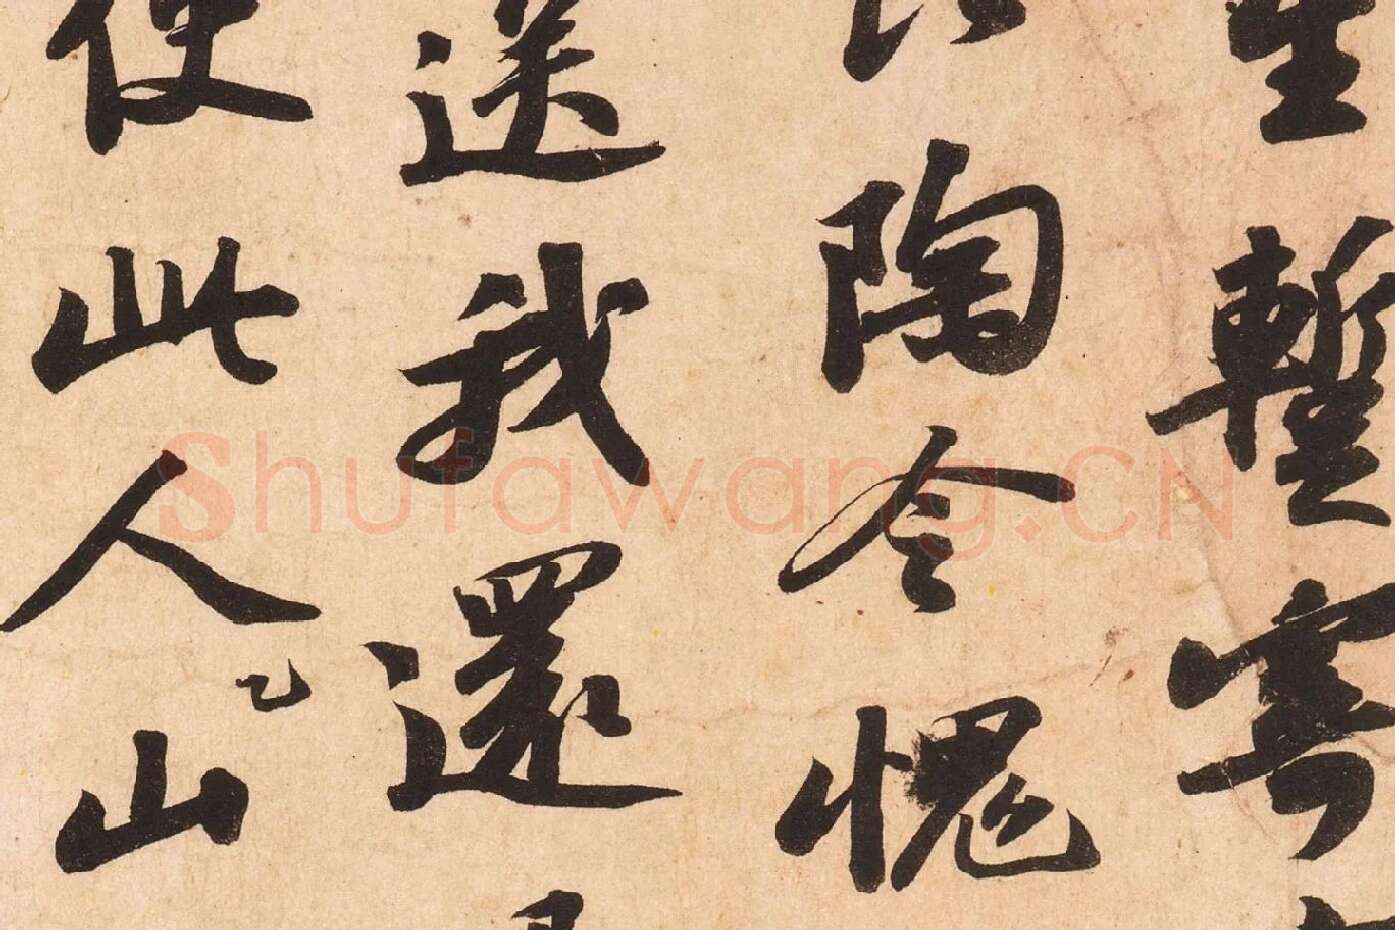 生暫寄
比陶令愧
送我還
使此人山
Shufawang.CN